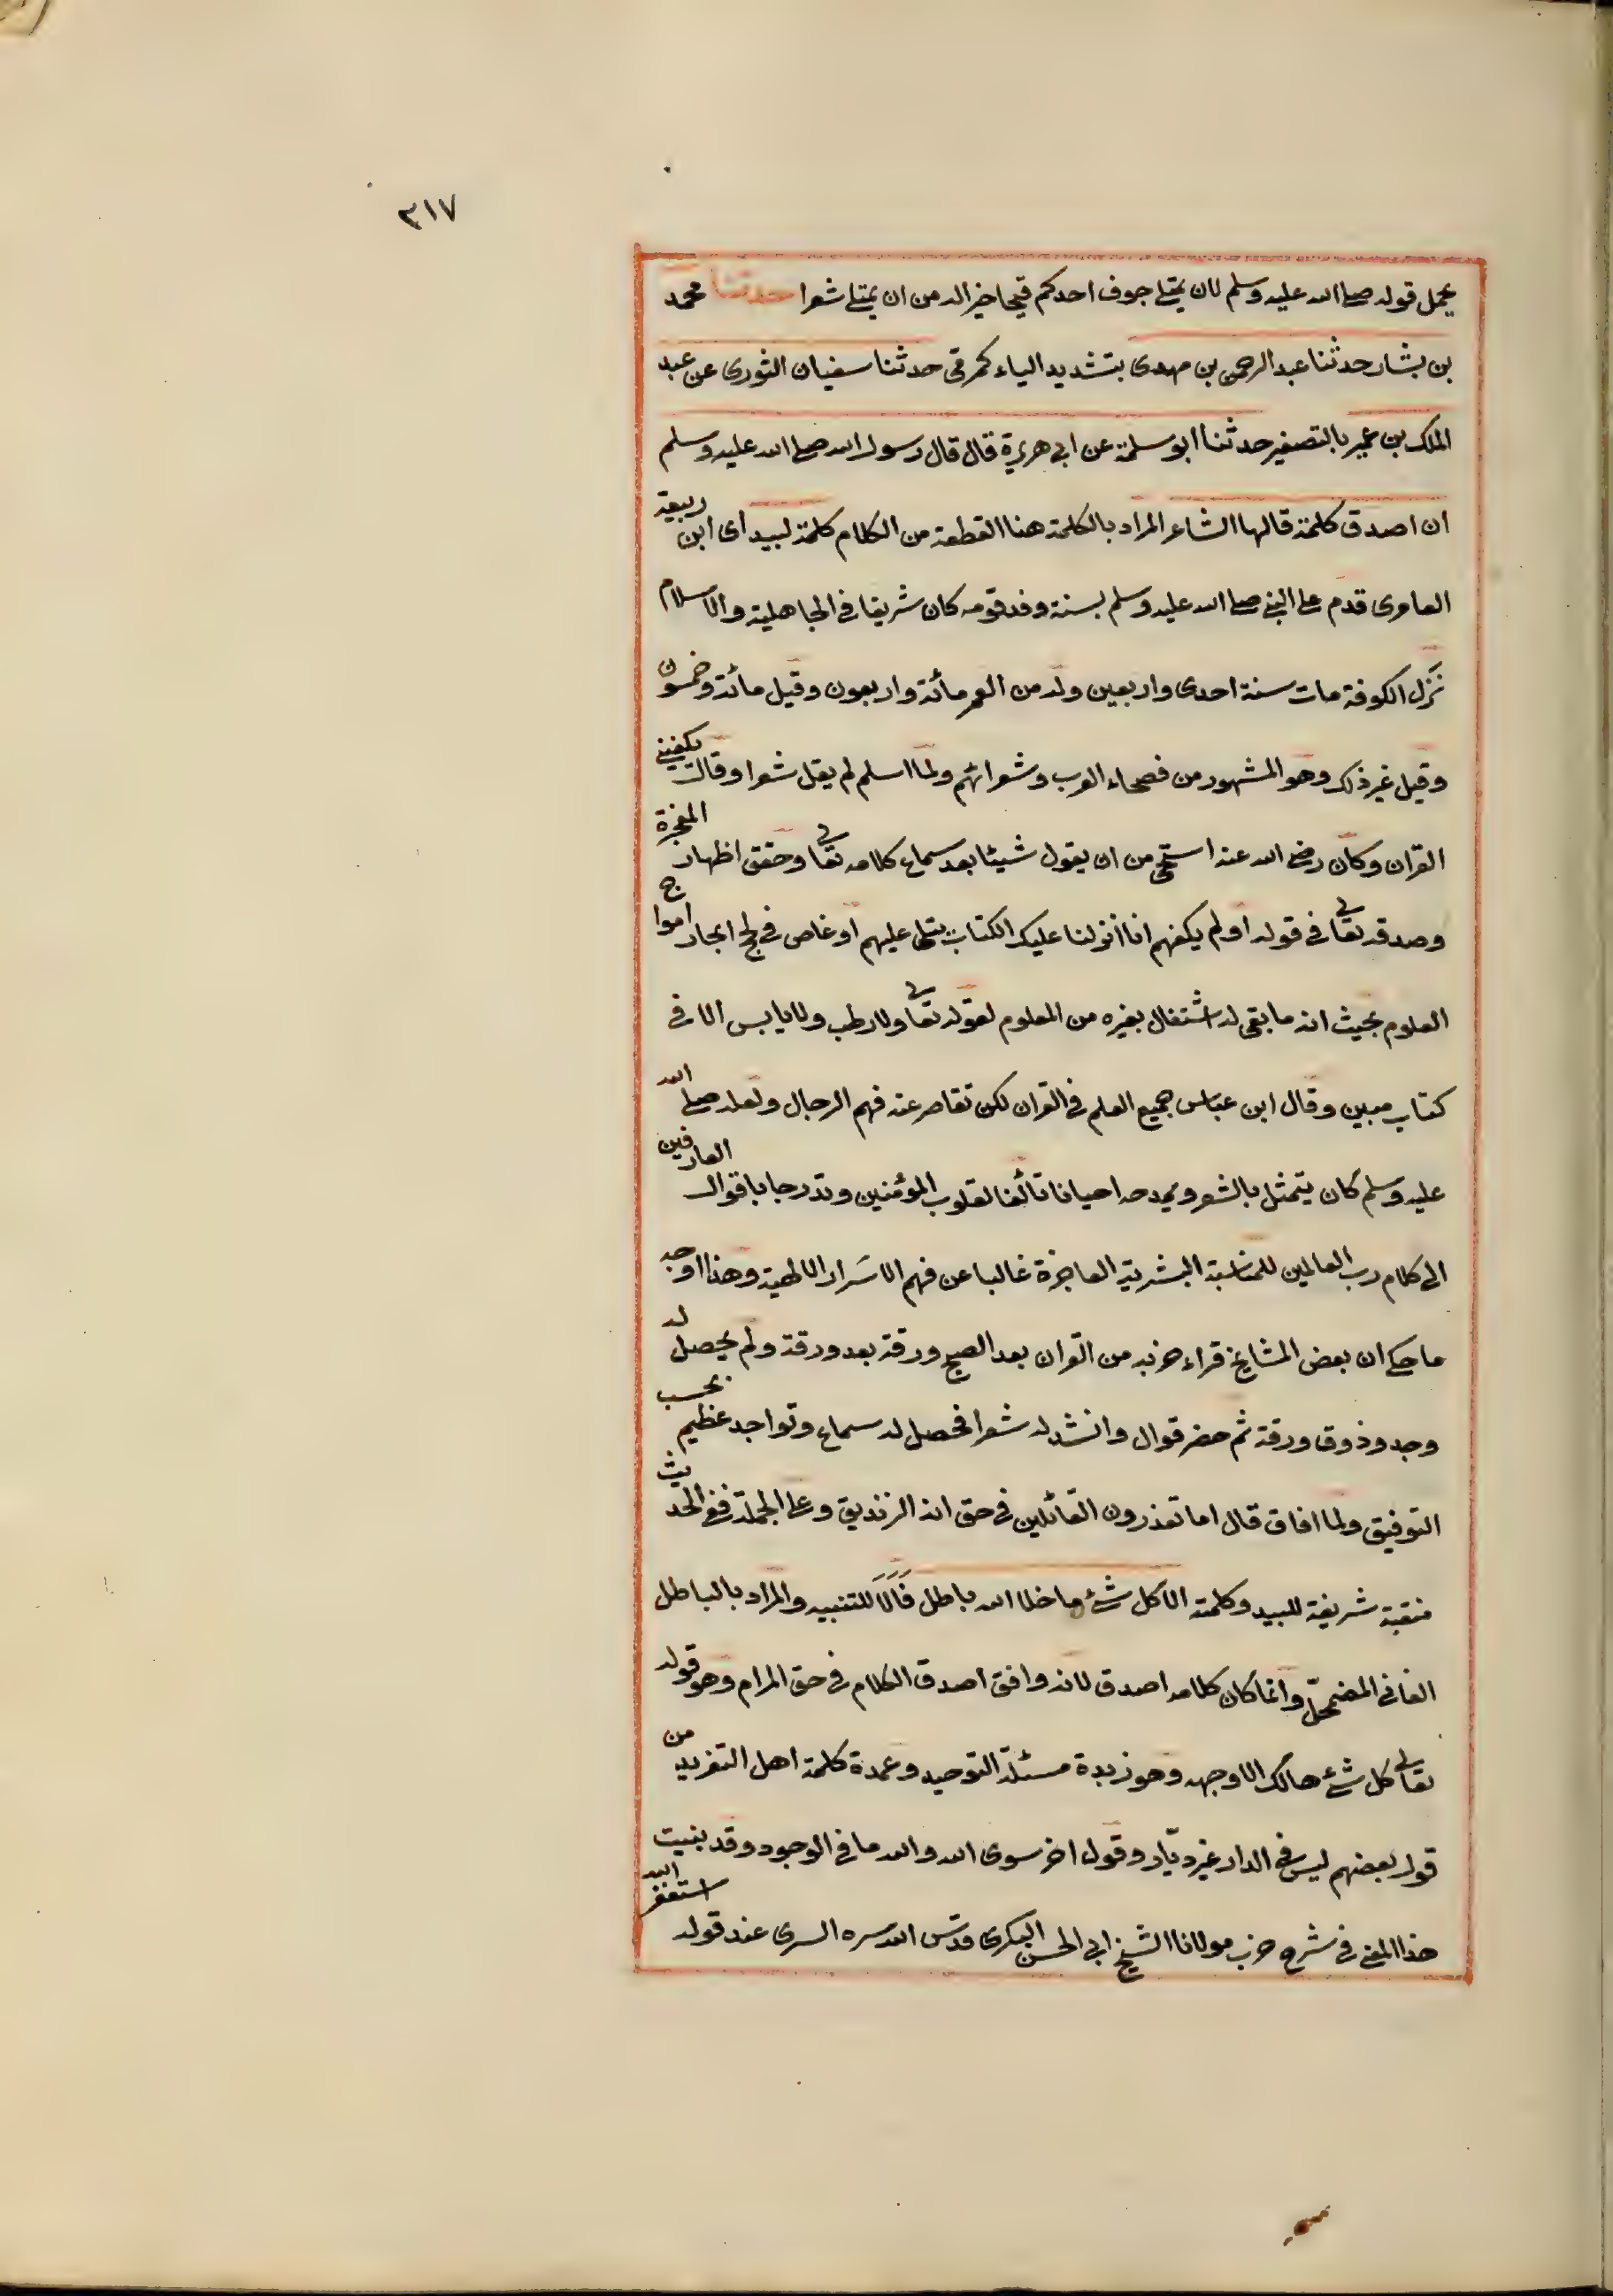 ٣١٧
يحمل قوله صلى الله عليه وسلم لان يمتلئ جوف احدكم قيحا خير له من ان يمتلئ شعرا حدثنا محمد
بن بشار حدثنا عبد الرحمن بن مهدى بتشديد الياء كمرمى حدثنا سفيان الثورى عن عبد
الملك بن عمير بالتصغير حدثنا ابو سلمة عن ابي هريرة قال قال رسول الله صلى الله عليه وسلم
ان اصدق كلمة قالها الشاعر المراد بالكلمة هنا القطعة من الكلام كلمة لبيد اى ابن ربيعة
العامرى قدم على النبي صلى الله عليه وسلم بسنة وفد قومه كان شريفا فى الجاهلية والاسلام
نزل الكوفة مات سنة احدى واربعين وله من العمر مائة واربعون وقيل مائة وخمسون
وقيل غير ذلك وهو المشهور من فصحاء العرب وشعرائهم ولما اسلم لم يقل شعرا وقال يكفيني
القران وكان رضى الله عنه استحى من ان يقول شيئا بعد سماع كلامه تعالى وحقق اظهار المعجزة
وصدقه تعالى فى قوله اولم يكفهم انا انزلنا عليك الكتاب يتلى عليهم او غاص فى لجج ابحار امواج
العلوم بحيث انه ما بقى له اشتغال بغيره من المعلوم لقوله تعالى ولا رطب ولا يابس الا فى
كتاب مبين وقال ابن عباس جميع العلم فى القران لكن تقاصر عنه فهم الرجال ولعله صلى الله
عليه وسلم كان يتمثل بالشعر ويمدحه احيانا تألفا لقلوب المؤمنين وتدرجا باقوال العارفين
الى كلام رب العالمين للمناسبة البشرية العاجزة غالبا عن فهم الاسرار الالهية وهذا اوجه
ما حكى ان بعض المشايخ قراء حزبه من القران بعد الصبح ورقة بعد ورقة ولم يحصل له
وجد وذوق ورقة ثم حضر قوال وانشد له شعرا فحصل له سماع وتواجد عظيم بحسب
التوفيق ولما افاق قال اما تعذرون القائلين فى حق انه الزنديق وعلى الجملة ففى الحديث
منقبة شريفة للبيد وكلمته الا كل شئ ما خلا الله باطل فألا للتنبيه والمراد بالباطل
الفانى المضمحل وانما كان كلامه اصدق لانه وافق اصدق الكلام فى حق المرام وهو قوله
تعالى كل شئ هالك الا وجهه وهو زبدة مسئلة التوحيد وعمدة كلمة اهل التفريد من
قول بعضهم ليس فى الدار غيره ديار وقول اخر سوى الله والله ما فى الوجود وقد بنيت
هذا المعنى فى شرح حزب مولانا الشيخ ابى الحسن البكرى قدس الله سره السرى عند قوله استغفر الله